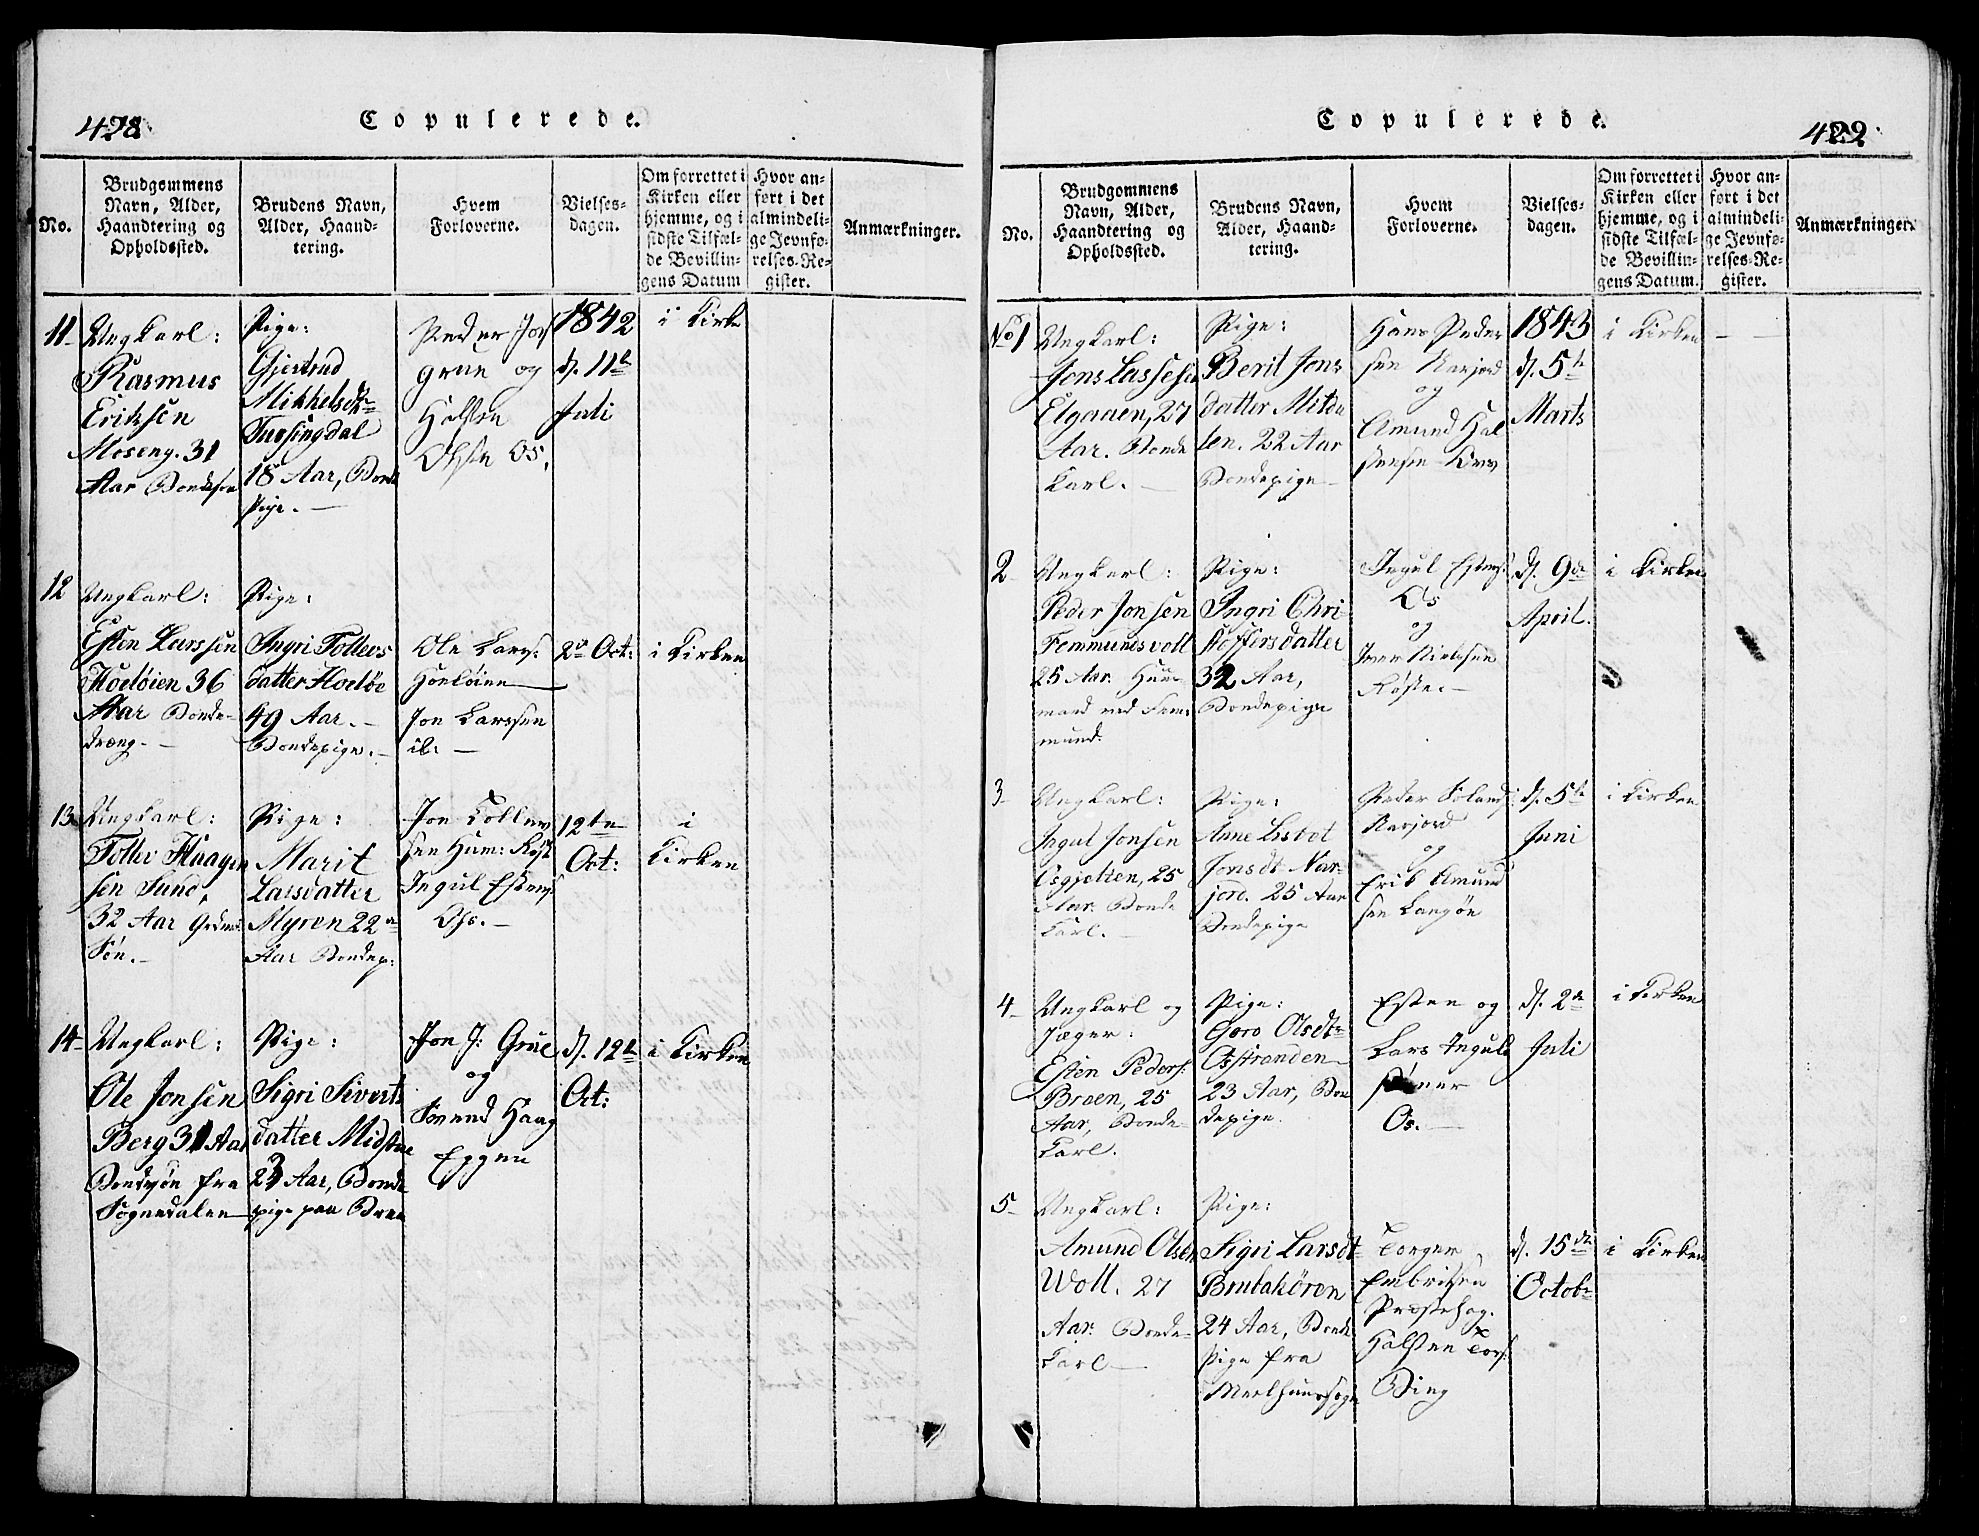 428
Copulerede.
No.
Brudgommens
Navn, Alder,
Haandtering og
Opholdssted.
Brudens Navn,
Alder, Haand-
tering.
Hvem
Forloverne.
Vielses-
dagen.
Om forrettet i
Kirken eller
hjemme, og i
sidste Tilfæl-
de Bevillin-
gens Datum
Hvor an-
ført i det
almindeli-
ge Jevnfø-
relses-Re-
gister.
Anmærkninger.
11
Ungkarl:
Rasmus
Eriksen
Moseng. 31
Aar Bondesøn
Pige:
Gjertrud
Mikkelsdtr
Tufsingdal
18 Aar, Bonde
Pige.
Peder
og
Halsten
Olsen Os.
1842
d. 11te
Juli
i Kirke
12
Ungkarl:
Esten Larssen
Hodløien 36
Aar Bonde-
dreng.
Pige:
Ingri Tollevs
datter Hodløe
49 Aar.
Bondepige.
Ole Lars:
Jon Larssen
ib:
2de Oct:
i Kirken
13
Ungkarl:
Tollev Haagen
sen Sund,
32 Aar
Søn.
Pige:
Marit
Larsdatter
Myren 22
Aar Bondep:
Jon Tollev
sen
Ingul Estens:
Os.
12te
Oct:
i
Kirken
14
Ungkarl:
Ole Jonsen
Berg 31 Aar
Bondesøn fra
Sognedalen
Pige:
Sigri Siverts
datter Midtdal
23 Aar, Bonde
pige paa
Jon J: Grue
og
Svend Haag
Eggen
d. 12te
Oct:
i Kirken
Copulerede.
429
No.
Brudgommens
Navn, Alder,
Haandtering og
Opholdssted.
Brudens Navn,
Alder, Haand-
tering.
Hvem
Forloverne.
Vielses-
dagen.
Om forrettet i
Kirken eller
hjemme, og i
sidste Tilfæl-
de Bevillin-
gens Datum.
Hvor an-
ført i det
almindeli-
ge Jevnfø-
relses-Re-
gister.
Anmærkninger.
No 1
Ungkarl:
Jons Lassesen
Elgaaen, 27
Aar. Bonde
Karl.
Pige:
Berit Jons
datter Mitda
len. 22 Aar
Bondepige
Hans Peder
sen Narjord
og
Amund Hal
stensen
1843
d. 5te
Marts
i Kirken
2
Ungkarl:
Peder Jonsen
Femmundsvoll
25 Aar.
mand ved Fem-
mund.
Pige:
Ingri Chri
stoffersdatter
32 Aar,
Bondepige
Ingul Estens:
Os
og
Iver Nielsen
Røste.
d. 9de
April.
i Kirken
3
Ungkarl:
Ingul Jonsen
Osgjelten, 25
Aar. Bonde
Karl.
Pige:
Anne Lisbet
Jonsdt Nar-
jord. 25 Aar
Bondepige
Peder
Narjord
og
Erik Amund
sen Langøe
d. 5te
Juni
i Kirken
4
Ungkarl og
Jæger:
Esten Peders:
Braen, 25
Aar, Bonde-
Karl.
Pige:
Goro Olsdtr
Osstranden
23 Aar, Bon
depige.
Esten og
Lars Inguls
sønner
Os.
d. 2de
Juli
i Kirken
5
Ungkarl:
Amund Olsen
Woll. 27
Aar. Bonde-
Karl
Pige:
Sigri Larsdt
24 Aar, Bonde
Pige fra
Meelhuussogn
Torger
Embritsen
Præsthag.
Halsten Tors:
Bing
d. 15de
Octobr
i Kirken